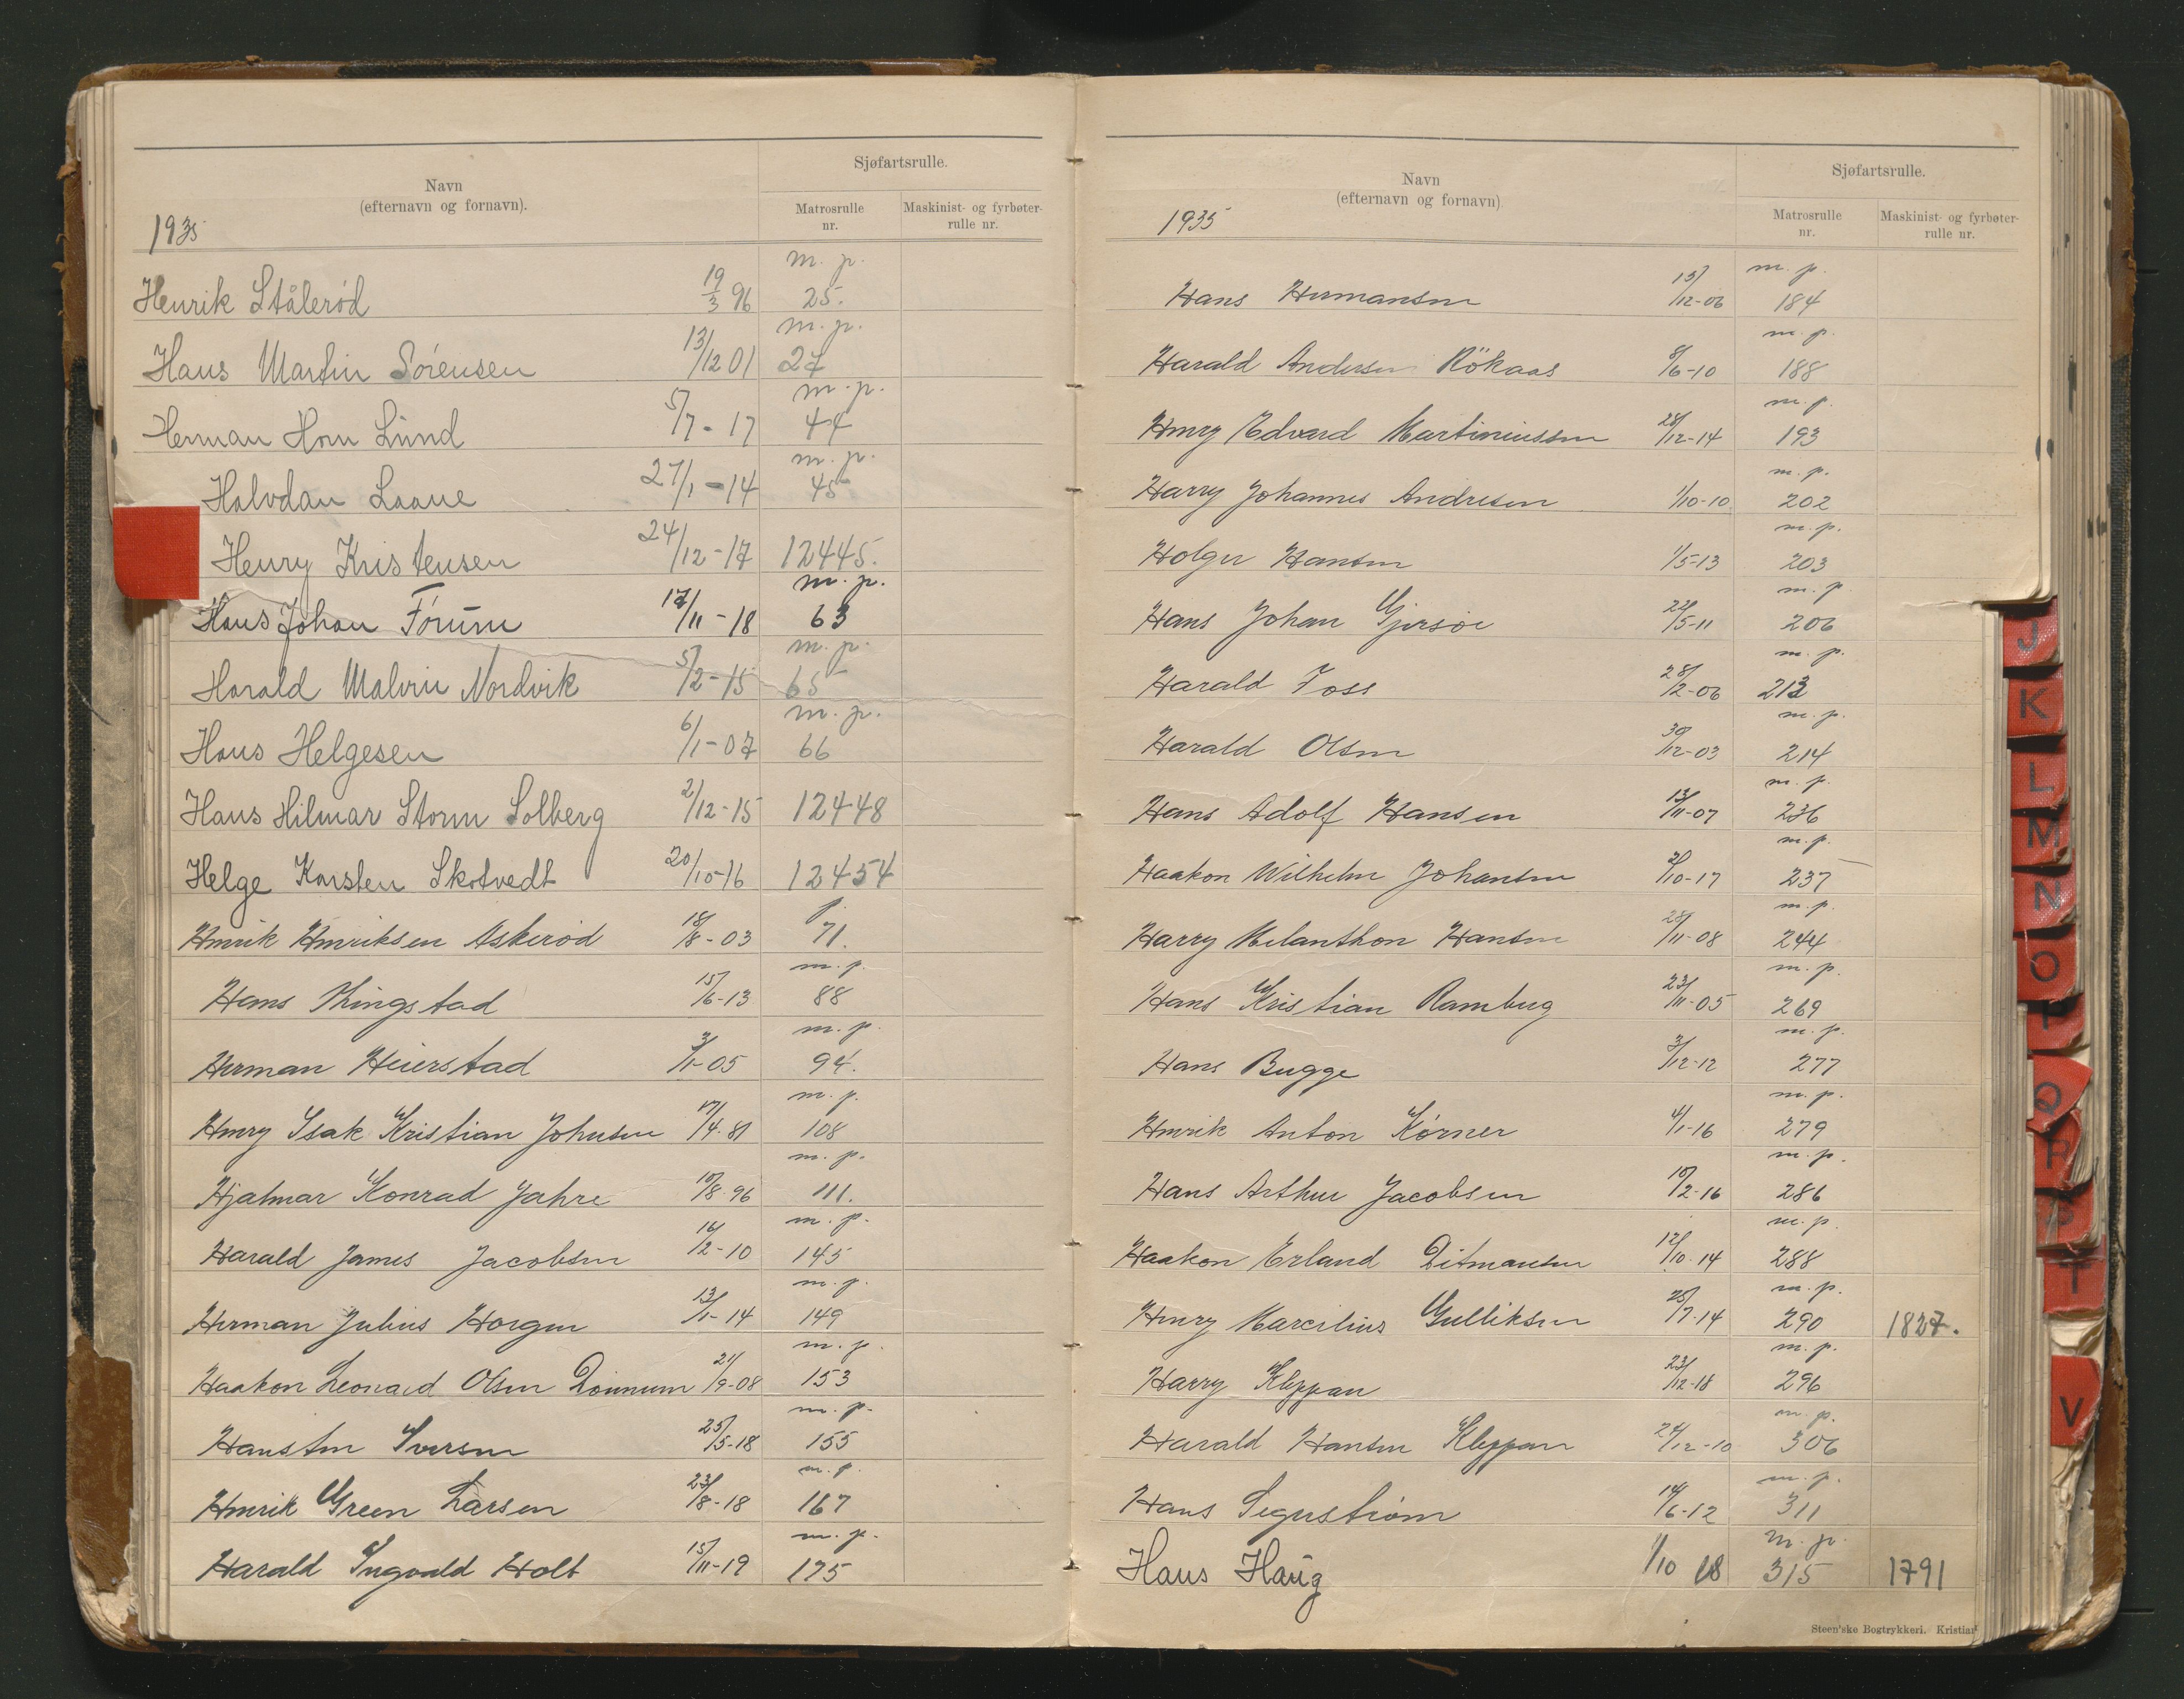 Navn
(efternavn og fornavn).
Sjøfartsrulle.
Matrosrulle nr.
Maskinist- og fyrbøter-rulle nr.
1935
Henrik Stålerød 19/3 96 m. p. 25.
Hans Martin Sørensen 13/12 01 m. p. 27
Herman Horn Lund 5/7-17 m. p. 44
Halvdan Laane 27/1-14 m. p. 45
Henry Kristensen 24/12-17 12445.
Hans Johan Førum 17/11-18 m. p. 63
Harald Malvin Nordvik 5/2-15 m. p. 65
Hans Helgesen 6/1-07 m. p. 66
Hans Hilmar Storm Solberg 2/12-15 12448
Helge Karsten Skotvedt 20/10-16 12454
Henrik Henriksen Askerød 18/8-03 p. 71.
Hans Thingstad 15/6-13 m. p. 88
Herman Heierstad 3/1-05 m. p. 94.
Henry Isak Kristian Johnsen 17/4.81 m. p. 108
Hjalmar Konrad Jahre 10/8.96 m. p. 111.
Harald James Jacobsen 16/2-10 m. p. 145
Herman Julius Horgen 13/1-14 m. p. 149
Haakon Leonard Olsen Dønnum 21/9-08 m. p. 153
Hansten Iversen 25/5-18 m. p. 155
Henrik Green Larsen 23/8-18 m. p. 167
Harald Ingvald Holt 15/11-19 m. p. 175
Navn
(efternavn og fornavn)
Sjøfartsrulle.
Matrosrulle nr.
Maskinist- og fyrbøter-rulle nr.
1935
Hans Hermansen 15/12-06 m. p. 184
Harald Andersen Rökaas 8/6-10 m. p. 188
Henry Edvard Martiniussen 28/12-14 m. p. 193
Harry Johannes Andresen 1/10-10 m. p. 202
Holger Hansen 1/5-13 m. p. 203
Hans Johan Gjersøe 22/5-11 m. p. 206
Harald Foss 28/2-06 m. p. 213
Harald Olsen 30/12-03 m. p. 214
Hans Adolf Hansen 13/11-07 m. p. 236
Haakon Wilhelm Johansen /10-17 m. p. 237
Harry Melanthon Hansen 28/11-08 m. p. 244
Hans Kristian Ramberg 23/11-05 m. p. 269
Hans Bugge 3/12-12 m. p. 277
Henrik Anton Körner 4/1-16 m. p. 279
Hans Arthur Jacobsen 10/2-16 m. p. 286
Haakon Erland Ditmansen 12/10.14 m. p. 288
Henry Marcelius Gulliksen 25/7.14 m. p. 290 1827.
Harry Kleppan 23/12-18 m. p. 296
Harald Hansen Kleppan 24/12-10 m. p. 306
Hans Segerstrøm 14/6-12 m. p. 311
Hans Haug 1/10 18 m. p. 315 1791
Steen'ske Bogtrykkeri. Kristian
J
K
L
M
N
O
P
Q
R
S
T
V